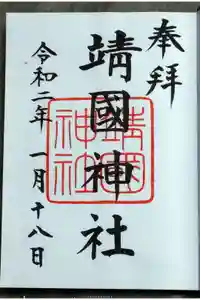 奉拝
靖國神社
靖國神社
令和二年 一月十八日